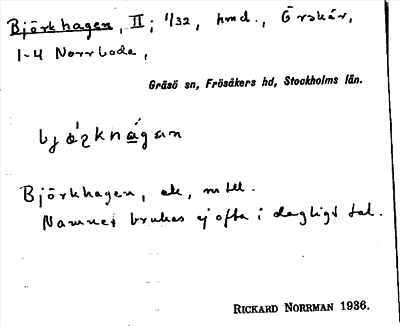 Björkhagen, II; 1/32, hmd., Örskär,
1-4 Norrboda,
Gräsö sn, Frösåkers hd, Stockholms län.
Björkhagen, ek, m tll.
Namnet brukas ej ofta i dagligt tal.
RICKARD NORRMAN 1936.